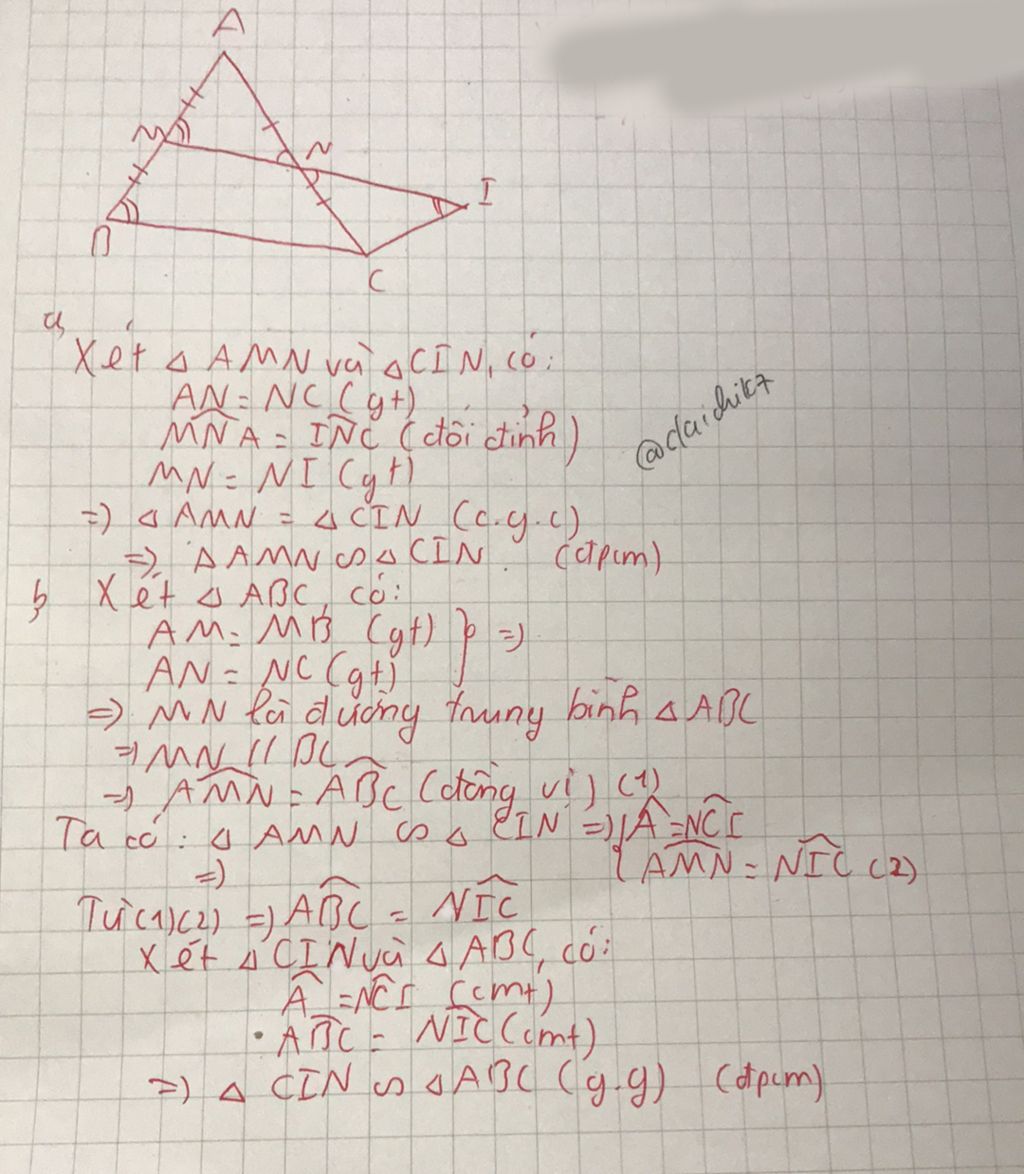 A
M
N
I
B
C
a,
Xét △ AMN và △ CIN, có:
AN = NC (gt)
@daichik7
MNA = INC (đối đỉnh)
MN = NI (gt)
=) △ AMN = △ CIN (c.g.c)
=) △ AMN ∽ △ CIN (đpcm)
b, Xét △ ABC, có:
AM = MB (gt) } =)
AN = NC (gt)
=) MN là đường trung bình △ ABC
=) MN // BC
=) AMN = ABC (đồng vị) (1)
Ta có: △ AMN ∽ △ CIN =) { A = NCI
=) AMN = NIC (2)
Từ (1)(2) =) ABC = NIC
Xét △ CIN và △ ABC, có:
A = NCI (cmt)
• ABC = NIC (cmt)
=) △ CIN ∽ △ ABC (g.g) (đpcm)